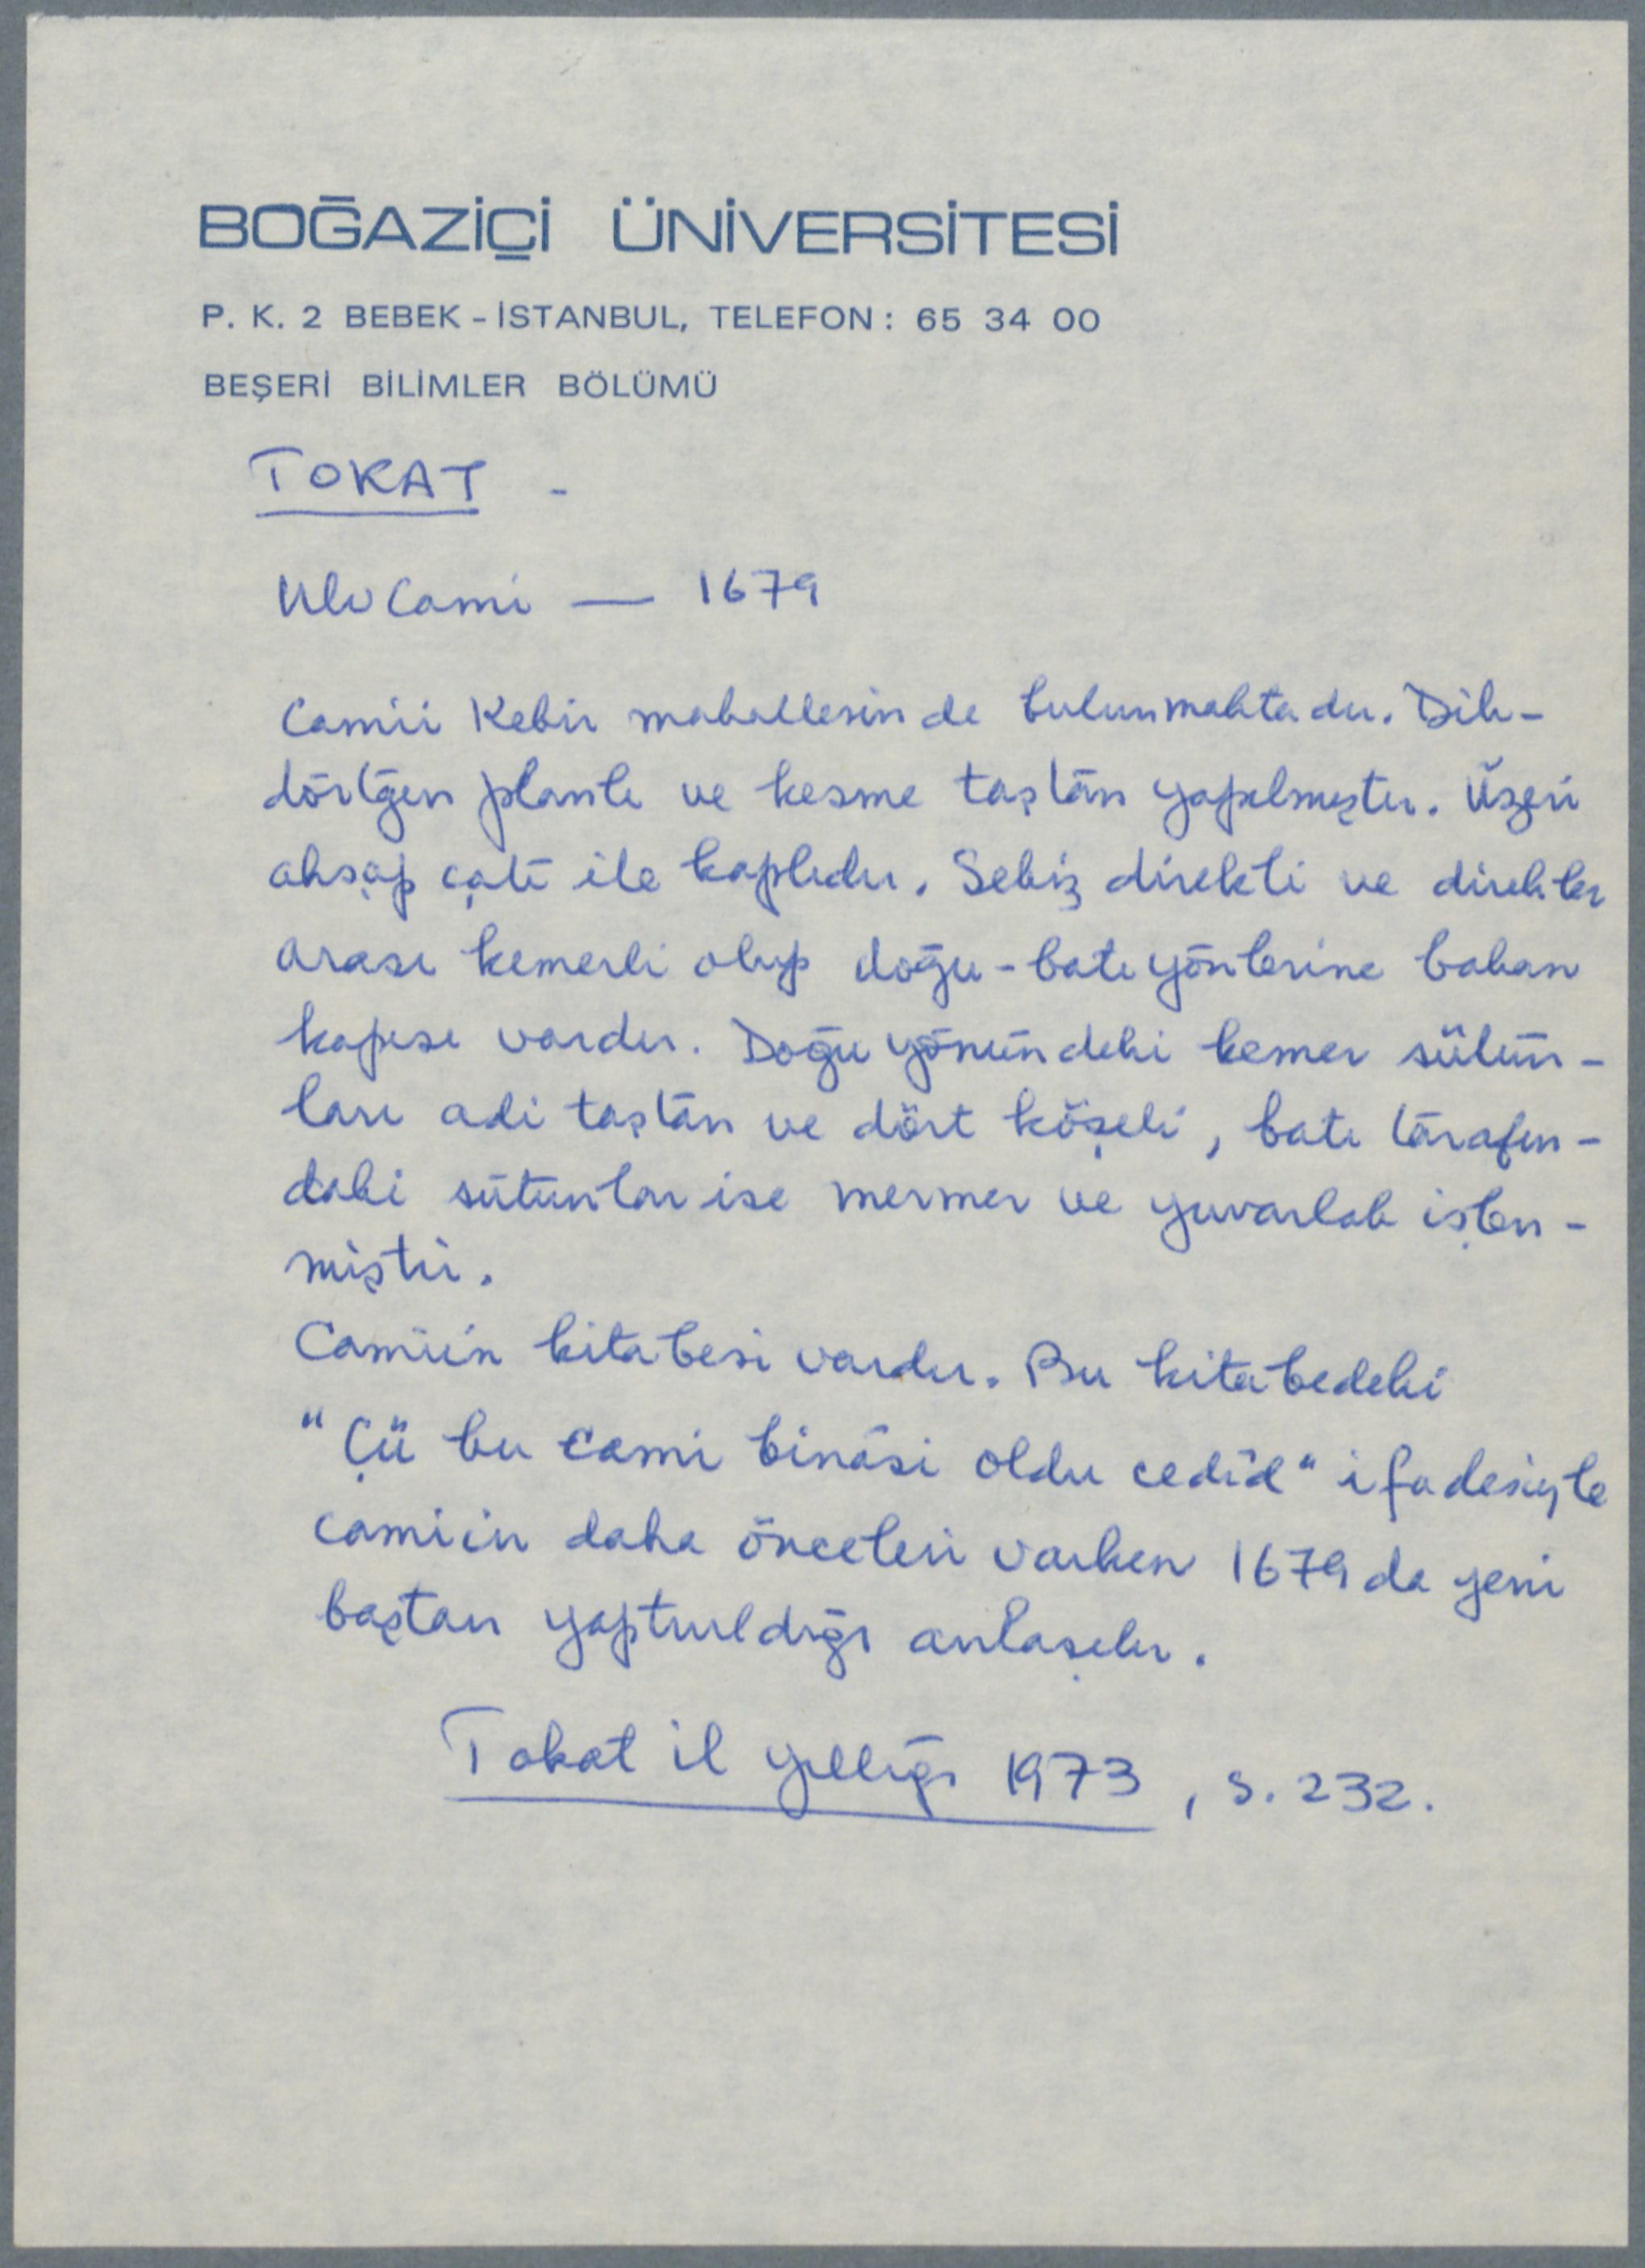 BOĞAZİÇİ ÜNİVERSİTESİ
P. K. 2 BEBEK - İSTANBUL, TELEFON : 65 34 00
BEŞERİ BİLİMLER BÖLÜMÜ
TOKAT -
Ulu Cami — 1679
Camii Kebir mahallesinde bulunmaktadır. Dik-
dörtgen planlı ve kesme taştan yapılmıştır. Üzeri
ahşap çatı ile kaplıdır. Sekiz direkli ve direkler
arası kemerli olup doğu-batı yönlerine bakan
kapısı vardır. Doğu yönündeki kemer sütun-
ları adi taştan ve dört köşeli, batı tarafın-
daki sütunlar ise mermer ve yuvarlak işlen-
miştir.
Camiin kitabesi vardır. Bu kitabedeki
"Çü bu cami binâsi oldu cedîd" ifadesiyle
camiin daha önceleri varken 1679 da yeni
baştan yaptırıldığı anlaşılır.
Tokat il yıllığı 1973, s. 232.